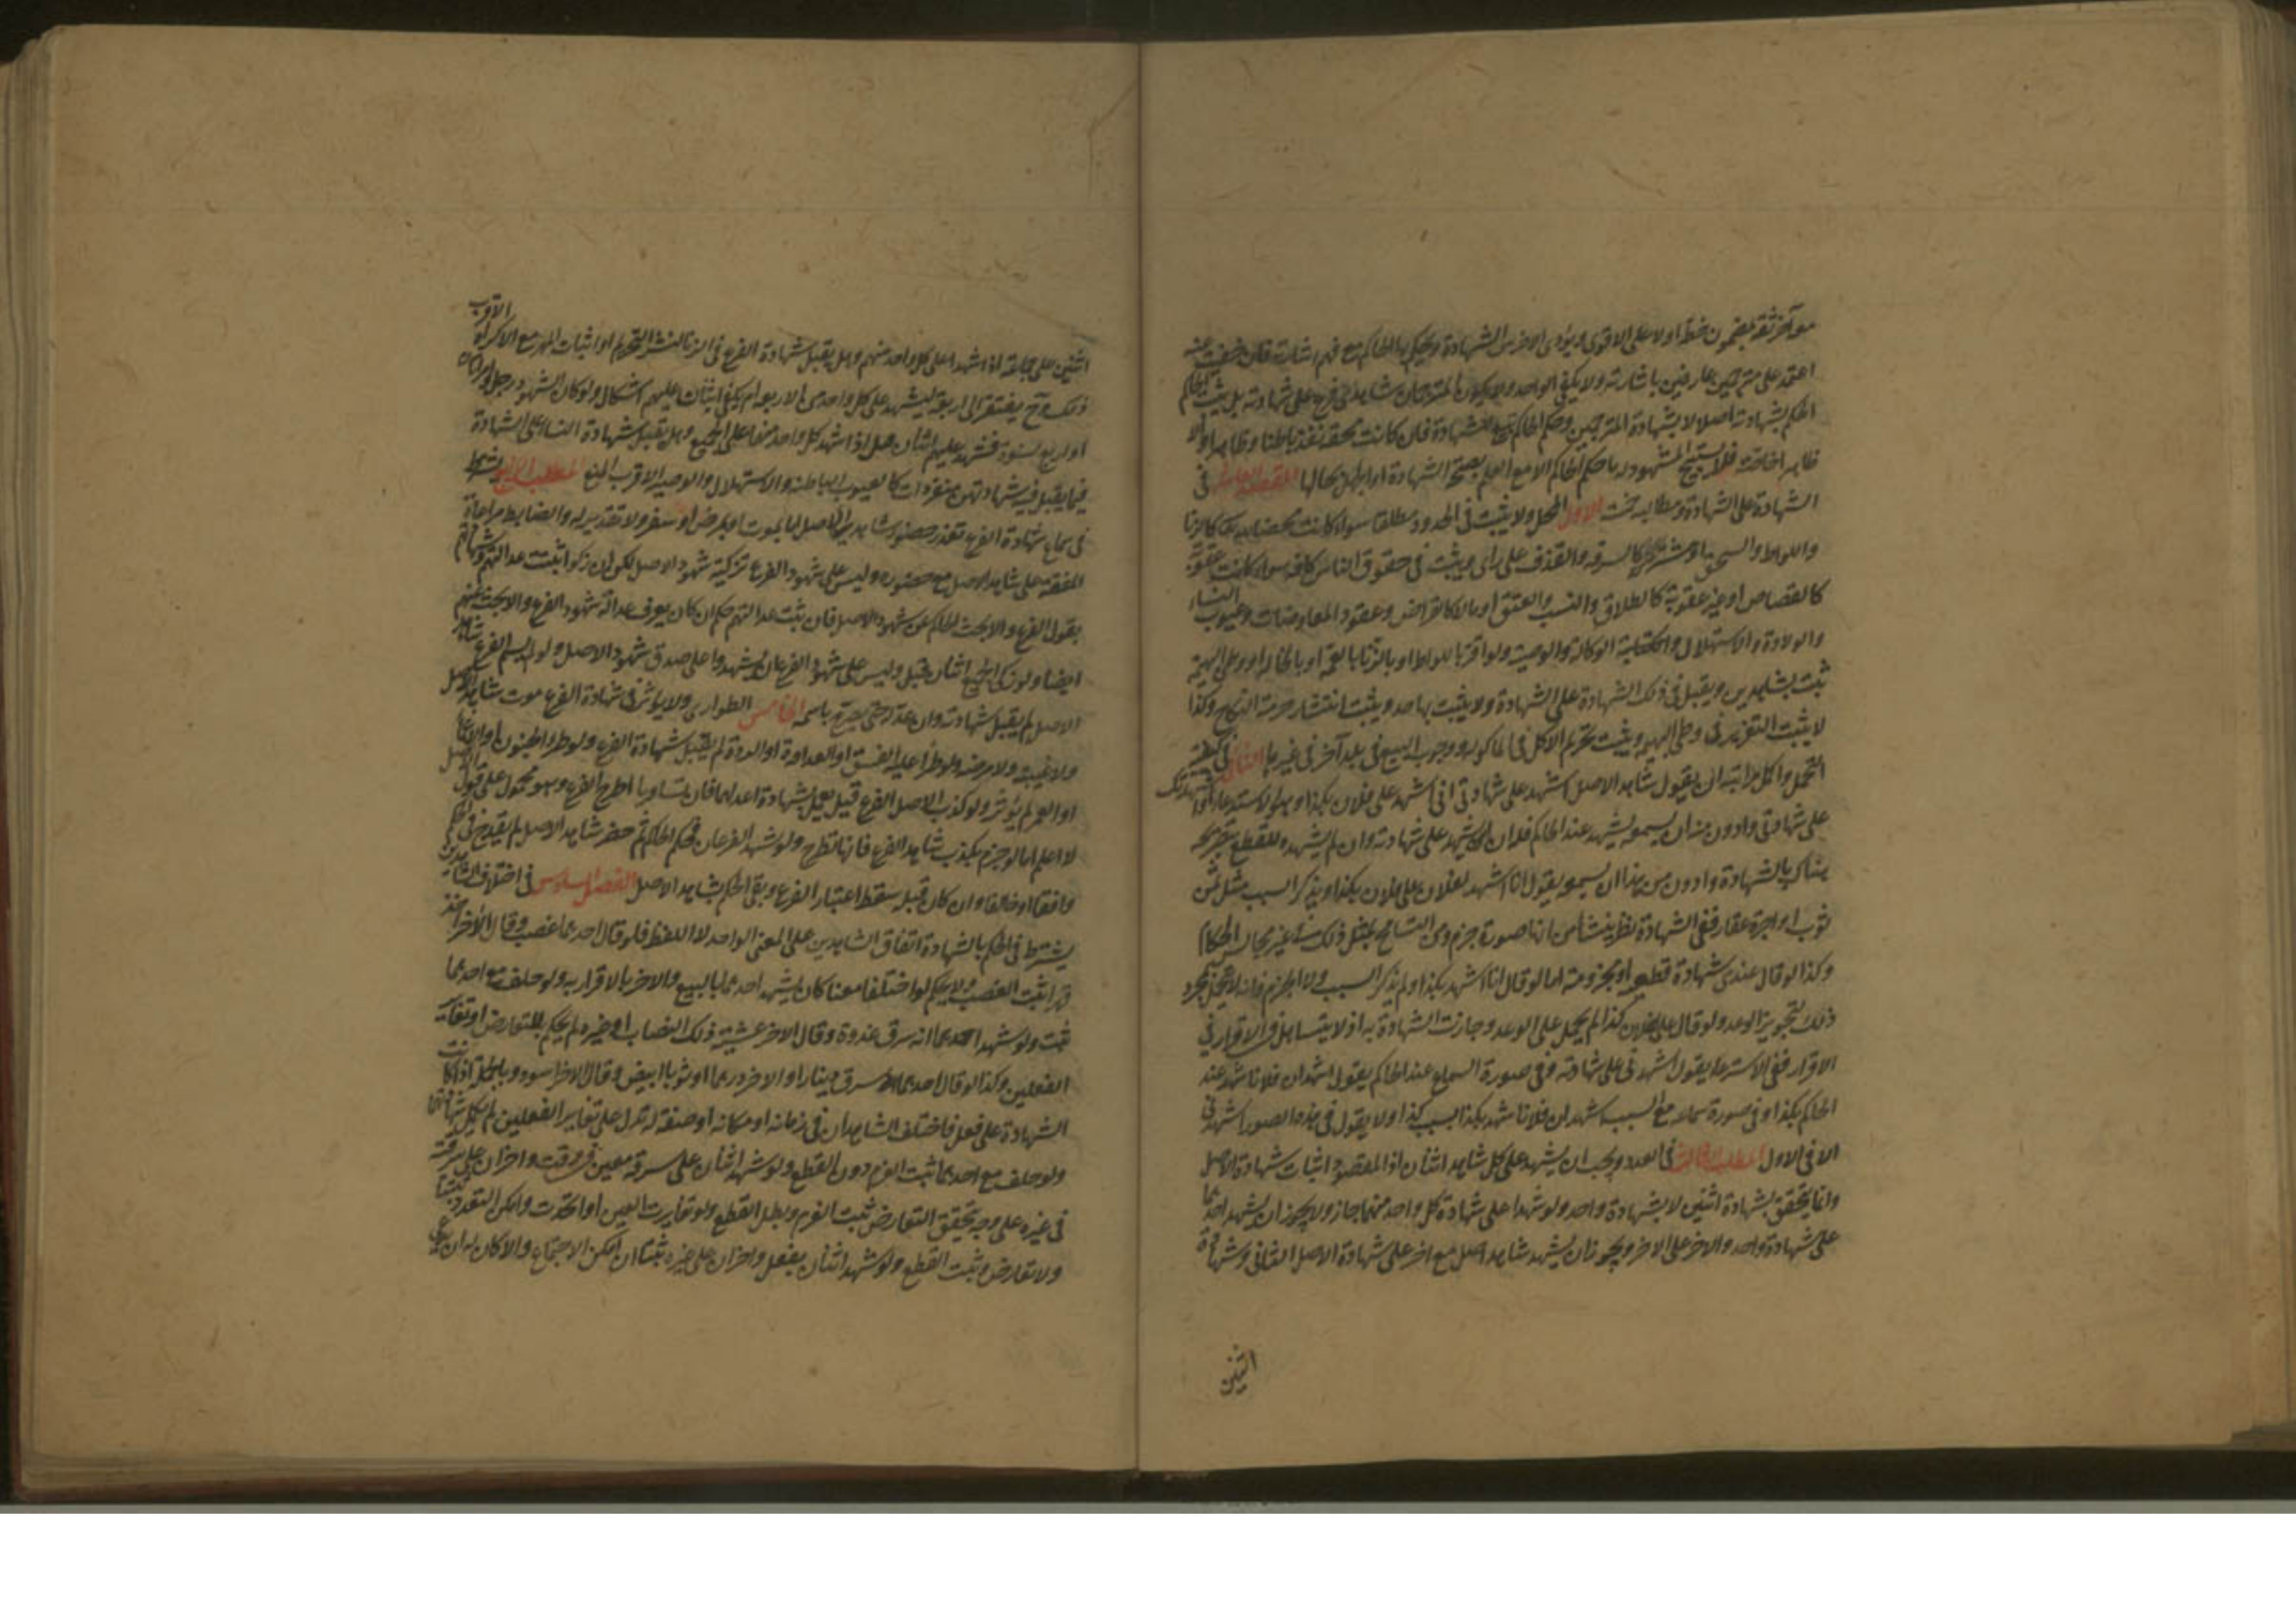 مع آخر ثقة بمضمون خطه اولا على الاقوى ويؤدى الاخرس الشهادة ويحكم بها الحاكم مع فهم اشارته فان خفيت عنه
اعتمد على مترجمين عارفين باشارته ولا يكفى الواحد ولا يكون المترجمان شاهدى فرع على شهادته بل يثبت الحاكم
الحكم بشهادته اصلا لا بشهادة المترجمين وحكم الحاكم تبع للشهادة فان كانت محقة نفذ باطنا وظاهرا والا
ظاهرا خاصة فلا يستبيح المشهود له ما حكم الحاكم الا مع العلم بصحة الشهادة او الجهل بحالها في
الشهادة على الشهادة ومطالبه خمسة الاول المحل ولا يثبت فى الحدود مطلقا سواء كانت محضا لله تعالى كالزنا
واللواط والسحق او مشتركة كالسرقة والقذف على رأى ويثبت فى حقوق الناس كافة سواء كانت عقوبة
كالقصاص او غير عقوبة كالطلاق والنسب والعتق او مالا كالقراض وعقود المعاوضات وعيوب النساء
والولادة والاستهلال والوكالة والوصية ولو اقر باللواط او بالزنا بالعمة او بالخالة او وطى البهيمة
ثبت بشاهدين ويقبل فى ذلك الشهادة على الشهادة ولا يثبت بها حد ويثبت انتشار حرمة النكاح وكذا
لا يثبت التعزير فى وطى البهيمة ويثبت تحريم الاكل فى الماكولة ووجوب البيع فى بلد آخر فى غيرها الثانى فى كيفية
التحمل واكمل مراتبه ان يقول شاهد الاصل اشهد على شهادتى انى اشهد على فلان بكذا وهو الاسترعاء او اشهدتك
على شهادتى وادون منه ان يسمعه يشهد عند الحاكم فله ان يشهد على شهادته وان لم يشهده للقطع بتصريحه
هناك بالشهادة وادون من هذا ان يسمعه يقول انا اشهد لفلان على فلان بكذا ويذكر السبب مثل ثمن
ثوب او اجرة عقار ففى الشهادة نظر ينشأ من انها صورة جزم ومن التسامح بمثل ذلك فى غير مجالس الحكام
وكذا لو قال عندى شهادة قطعية او مجزومة اما لو قال انا اشهد بكذا ولم يذكر السبب ولا الجزم فانه لا يحمل بمجرد
ذلك لتجويز الوعد ولو قال على لفلان كذا لم يحمل على الوعد وجازت الشهادة به اذ لا يتساهل فى الاقرار
الاقرار ففى الاسترعاء يقول اشهدنى على شهادته وفى صورة السماع عند الحاكم يقول اشهد ان فلانا شهد عند
الحاكم بكذا وفى صورة سماعه مع السبب اشهد ان فلانا شهد بكذا بسبب كذا ولا يقول فى هذه الصور اشهدنى
الا فى الاول المطلب الثالث فى العدد ويجب ان يشهد على كل شاهد اثنان اذ المقصود اثبات شهادة الاصل
وانما يتحقق بشهادة اثنين لا بشهادة واحد ولو شهدا على شهادة كل واحد منهما جاز ولا يجوز ان يشهد احدهما
على شهادة واحد والاخر على الاخر ويجوز ان يشهد شاهد اصل مع اخر على شهادة الاصل الثانى وشهادة
اثنين
اثنين على جماعة اذا شهدا على كل واحد منهم وهل يقبل شهادة الفرع فى الزنا لنشر التحريم او اثبات المهر مع الاكراه الاقرب
ذلك وح يفتقر الى اربعة ليشهد على كل واحد من الاربعة ام يكفى اثنان عليهم اشكال ولو كان الشهود رجل وامراتان
او اربع نسوة فشهد عليهم اثنان اذا شهد كل واحد منهما على الجميع وهل يقبل شهادة النساء على الشهادة
فيما يقبل فيه شهادتهن منفردات كالعيوب الباطنة والاستهلال والوصية الاقرب المنع المطلب الرابع يشترط
فى سماع شهادة الفرع تعذر حضور شاهدى الاصل اما بموت او بمرض او سفر ولا تقدير له والضابط مراعاة
المشقة على شاهد الاصل مع حضوره وليس على شهود الفرع تزكية شهود الاصل لكن ان زكوا ثبتت عدالتهم وشهادتهم
بقول الفرع والا بحث الحاكم عن شهود الاصل فان ثبت عدالتهم حكم ان كان يعرف عدالة شهود الفرع والا بحث عنهم
ايضا ولو زكى الجميع اثنان قبل وليس على شهود الفرع ان يشهدوا على صدق شهود الاصل ولو لم يسم الفرع شاهد
الاصل لم يقبل شهادته وان عدله حتى يصرح باسمه الخامس الطوارى ولا يؤثر فى شهادة الفرع موت شاهد الاصل
ولا غيبته ولا مرضه ولو طرأ عليه الفسق او العداوة او الردة لم يقبل شهادة الفرع ولو طرأ الجنون او الاغماء
او العمى لم يؤثر ولو كذب الاصل الفرع قيل يعمل بشهادة اعدلهما فان تساويا اطرح الفرع وهو محمول على قول الاصل
لا اعلم اما لو جزم بكذب شاهد الفرع فانها تطرح ولو شهد الفرعان فحكم الحاكم ثم حضر شاهد الاصل لم يقدح فى الحكم
وافقا او خالفا وان كان قبله سقط اعتبار الفرع وبقى الحكم بشاهد الاصل الفصل السادس فى اختلاف الشاهدين
يشترط فى الحكم بالشهادة اتفاق الشاهدين على المعنى الواحد لا اللفظ فلو قال احدهما غصب وقال الآخر اخذ
قهرا ثبت الغصب ولا يحكم لو اختلفا معنا كان يشهد احدهما بالبيع والاخر بالاقرار به ولو حلف مع احدهما
ثبت ولو شهد احدهما انه سرق غدوة وقال الاخر عشية ذلك النصاب او غيره لم يحكم للتعارض او تغاير
الفعلين وكذا لو قال احدهما سرق دينارا والاخر درهما او ثوبا ابيض وقال الاخر اسود وبالجملة اذا كانت
الشهادة على فعل فاختلف الشاهدان فى زمانه او مكانه او صفة له تدل على تغاير الفعلين لم يكمل شهادتهما
ولو حلف مع احدهما ثبت الغرم دون القطع ولو شهد اثنان على سرقة معين فى وقت واخران على سرقته
فى غيره على وجه يتحقق التعارض ثبت الغرم وبطل القطع ولو تغايرت العين او اتحدت وامكن التعدد ثبتا
ولا تعارض وثبت القطع ولو شهد اثنان بفعل واخران على غيره ثبتا ان امكن الاجتماع والا كان له ان يدعى